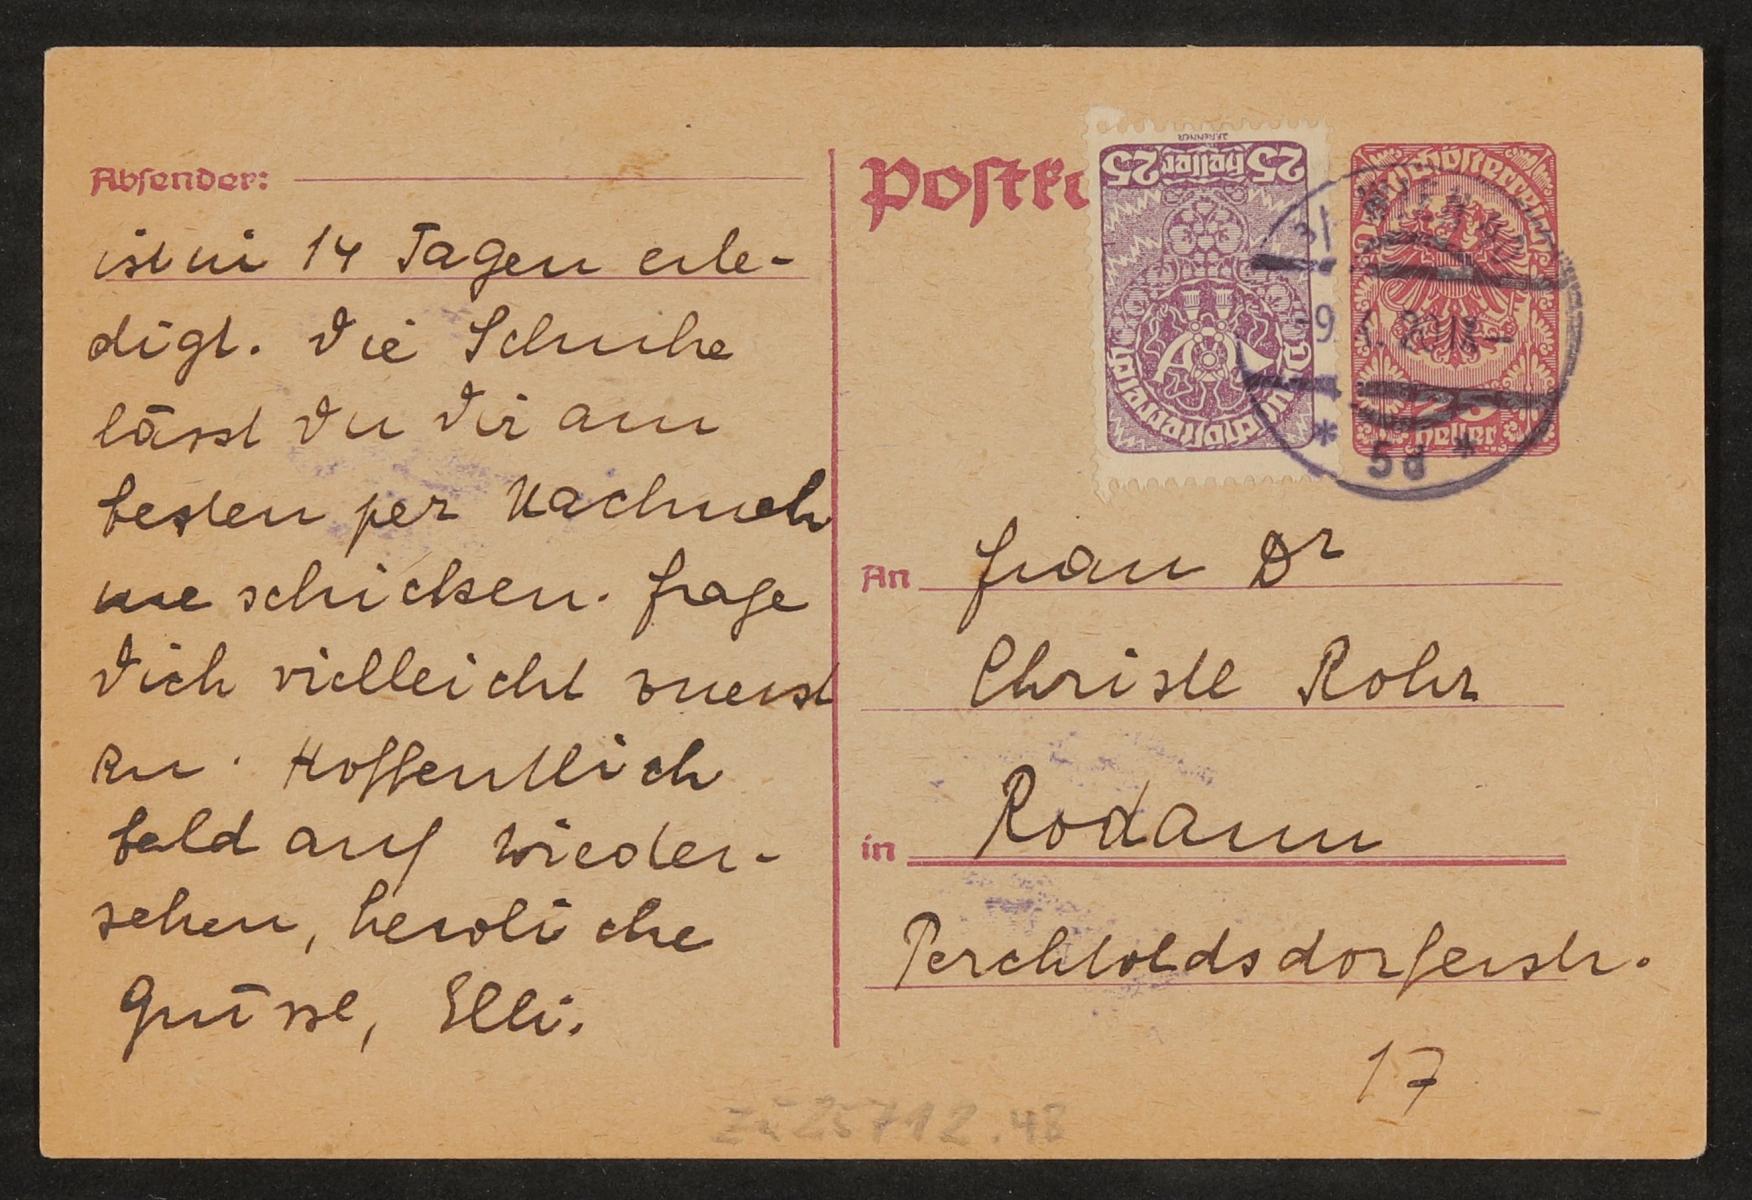 Absender:
ist in 14 Tagen erle-
digt. Die Schuhe
lässt Du Dir am
besten per Nachneh
me schicken. Frage
Dich vielleicht zuerst
an. Hoffentlich
bald auf Wieder-
sehen, herzliche
Grüsse, Elli.
Postk
25 Heller 25
Deutschösterreich
J.F.RENNER
Deutschösterreich
25
Heller
3/
WIEN
9. 20
* 5d *
An Frau Dr
Christl Rohr
in Rodaun
Perchtoldsdorferstr.
17
ZU 25712.48